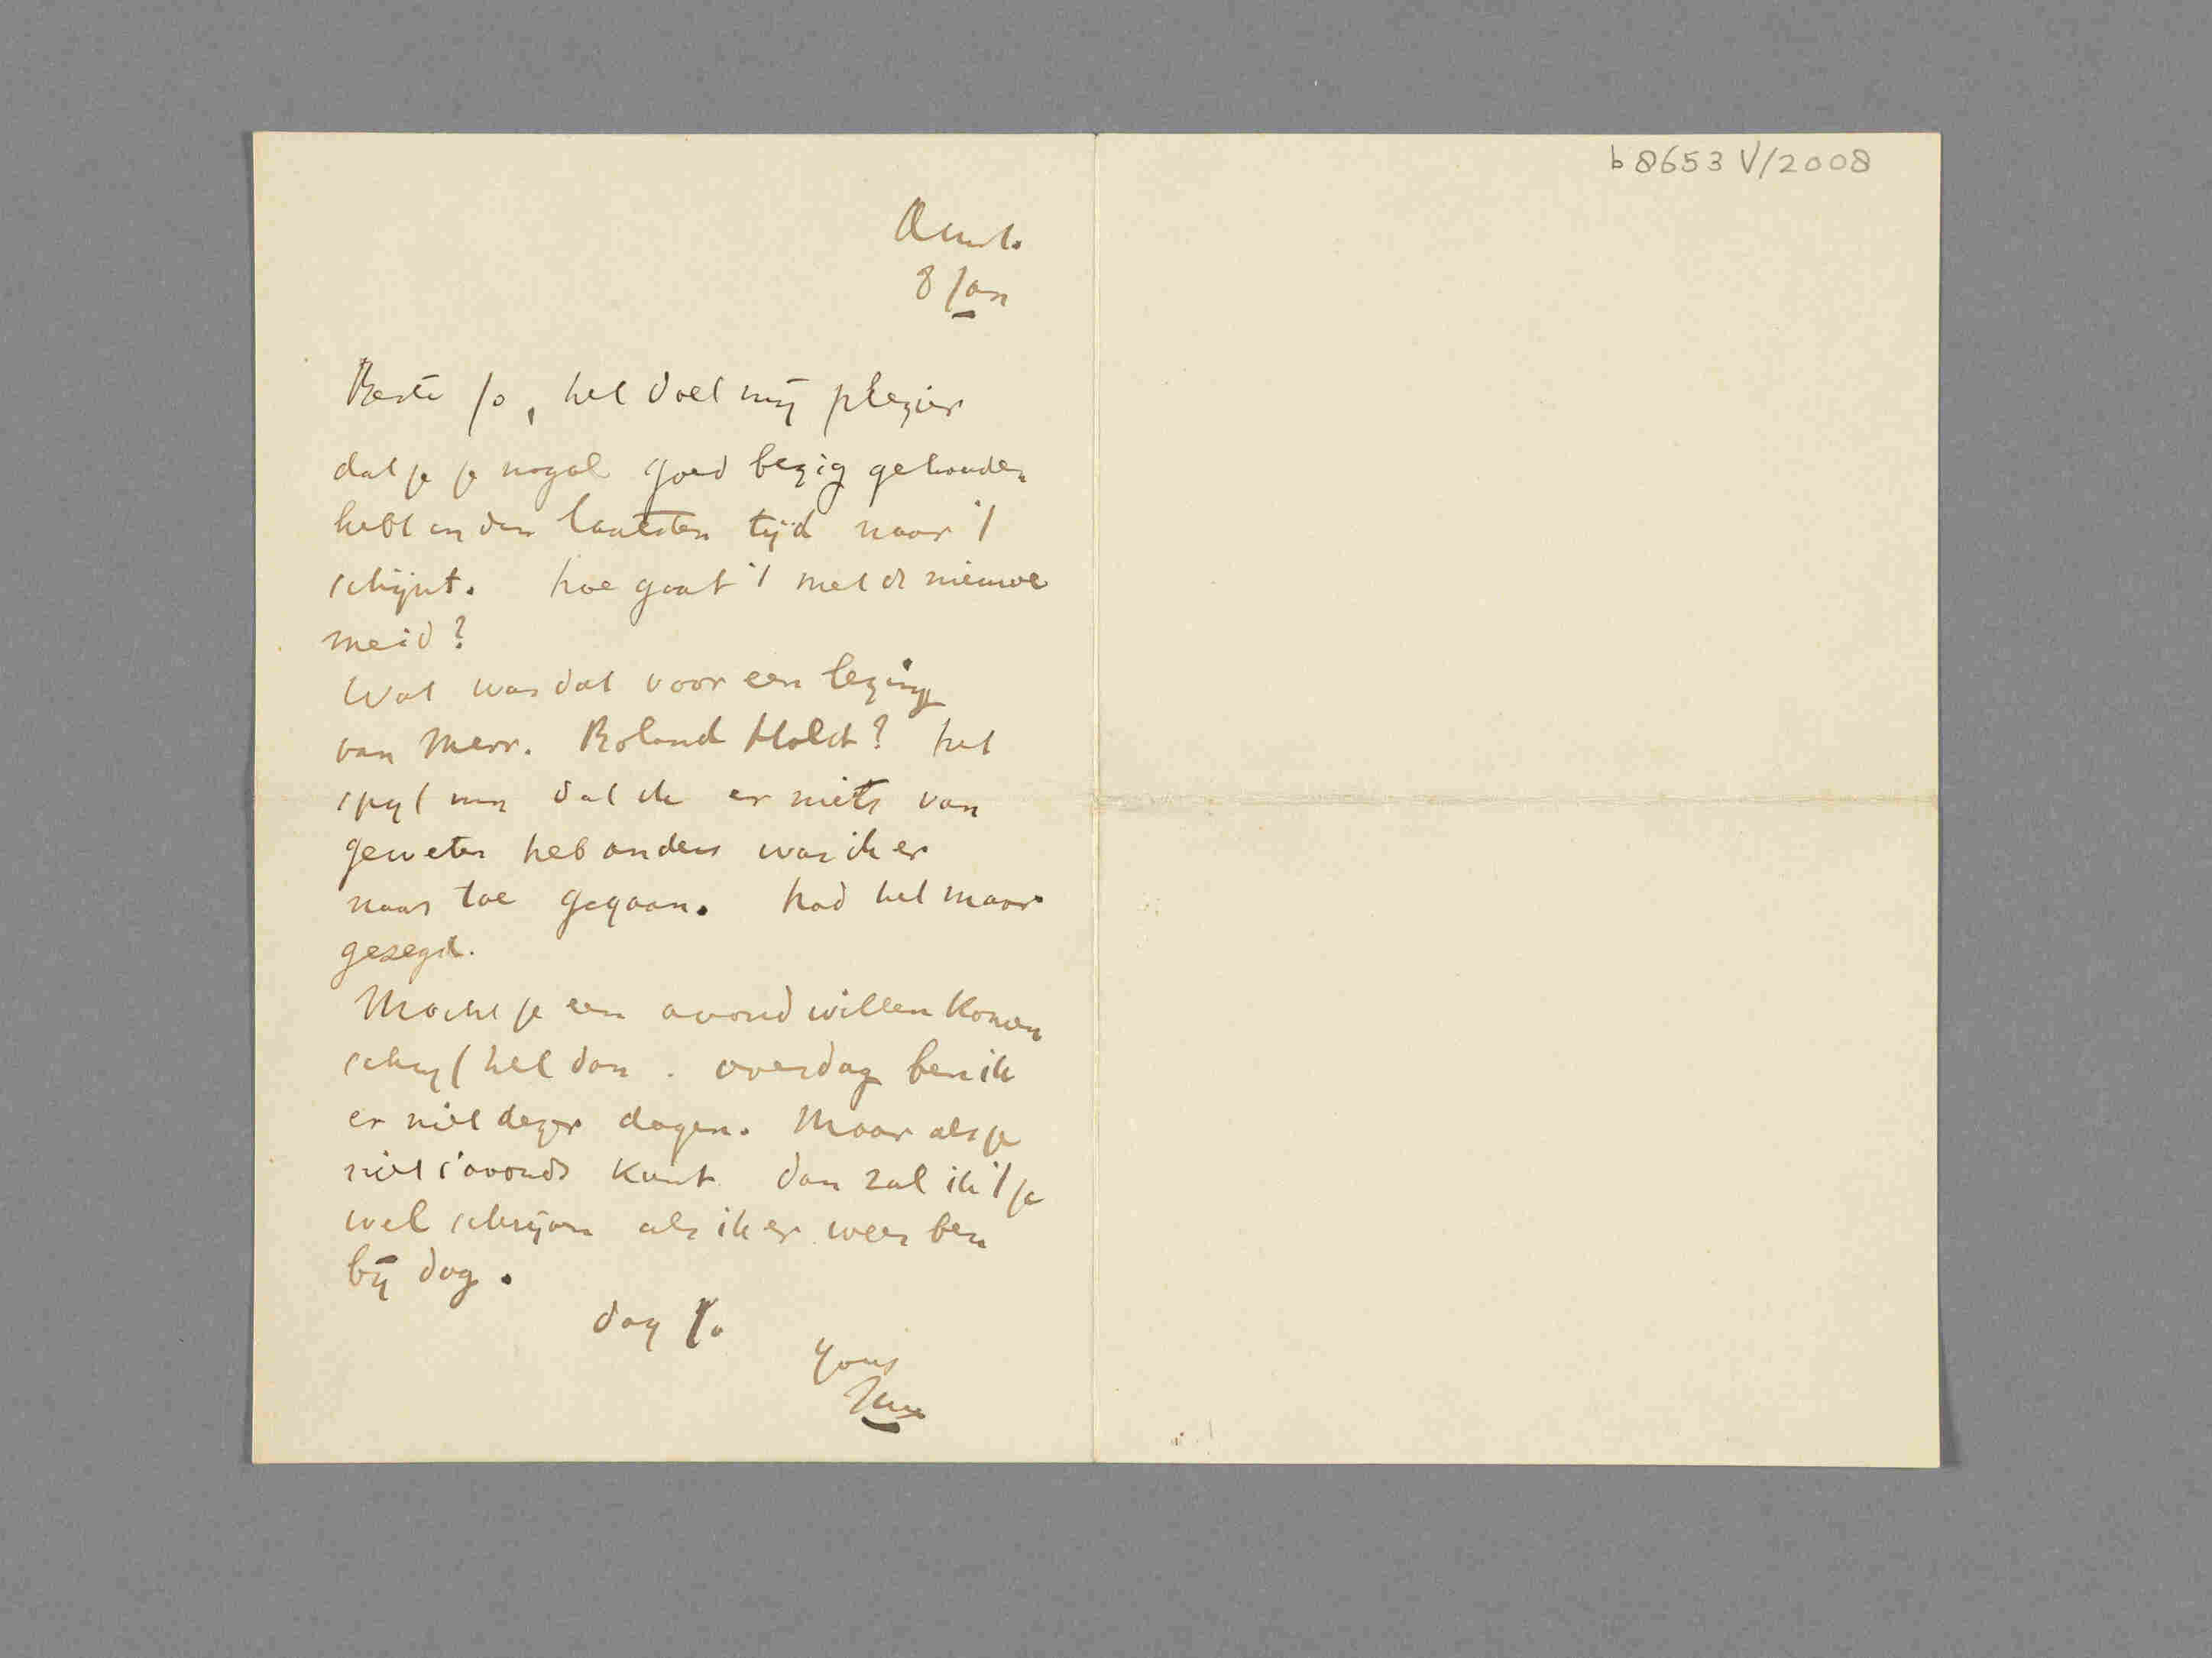 Amst.
8 Jan
Beste Jo, het doet mij plezier
dat je je nogal goed bezig gehouden
hebt in den laatsten tijd naar 't
schijnt. hoe gaat 't met de nieuwe
meid?
Wat was dat voor een lezing
van Mevr. Roland Holst? het
spijt mij dat ik er niets van
geweten heb anders was ik er
naar toe gegaan. had het maar
gezegd.
Mocht je een avond willen komen
schrijf het dan. overdag ben ik
er niet dezer dagen. Maar als je
niet s'avonds kunt dan zal ik 't je
wel schrijven als ik er weer ben
bij dag.
dag Jo
yours
b 8653 V/2008